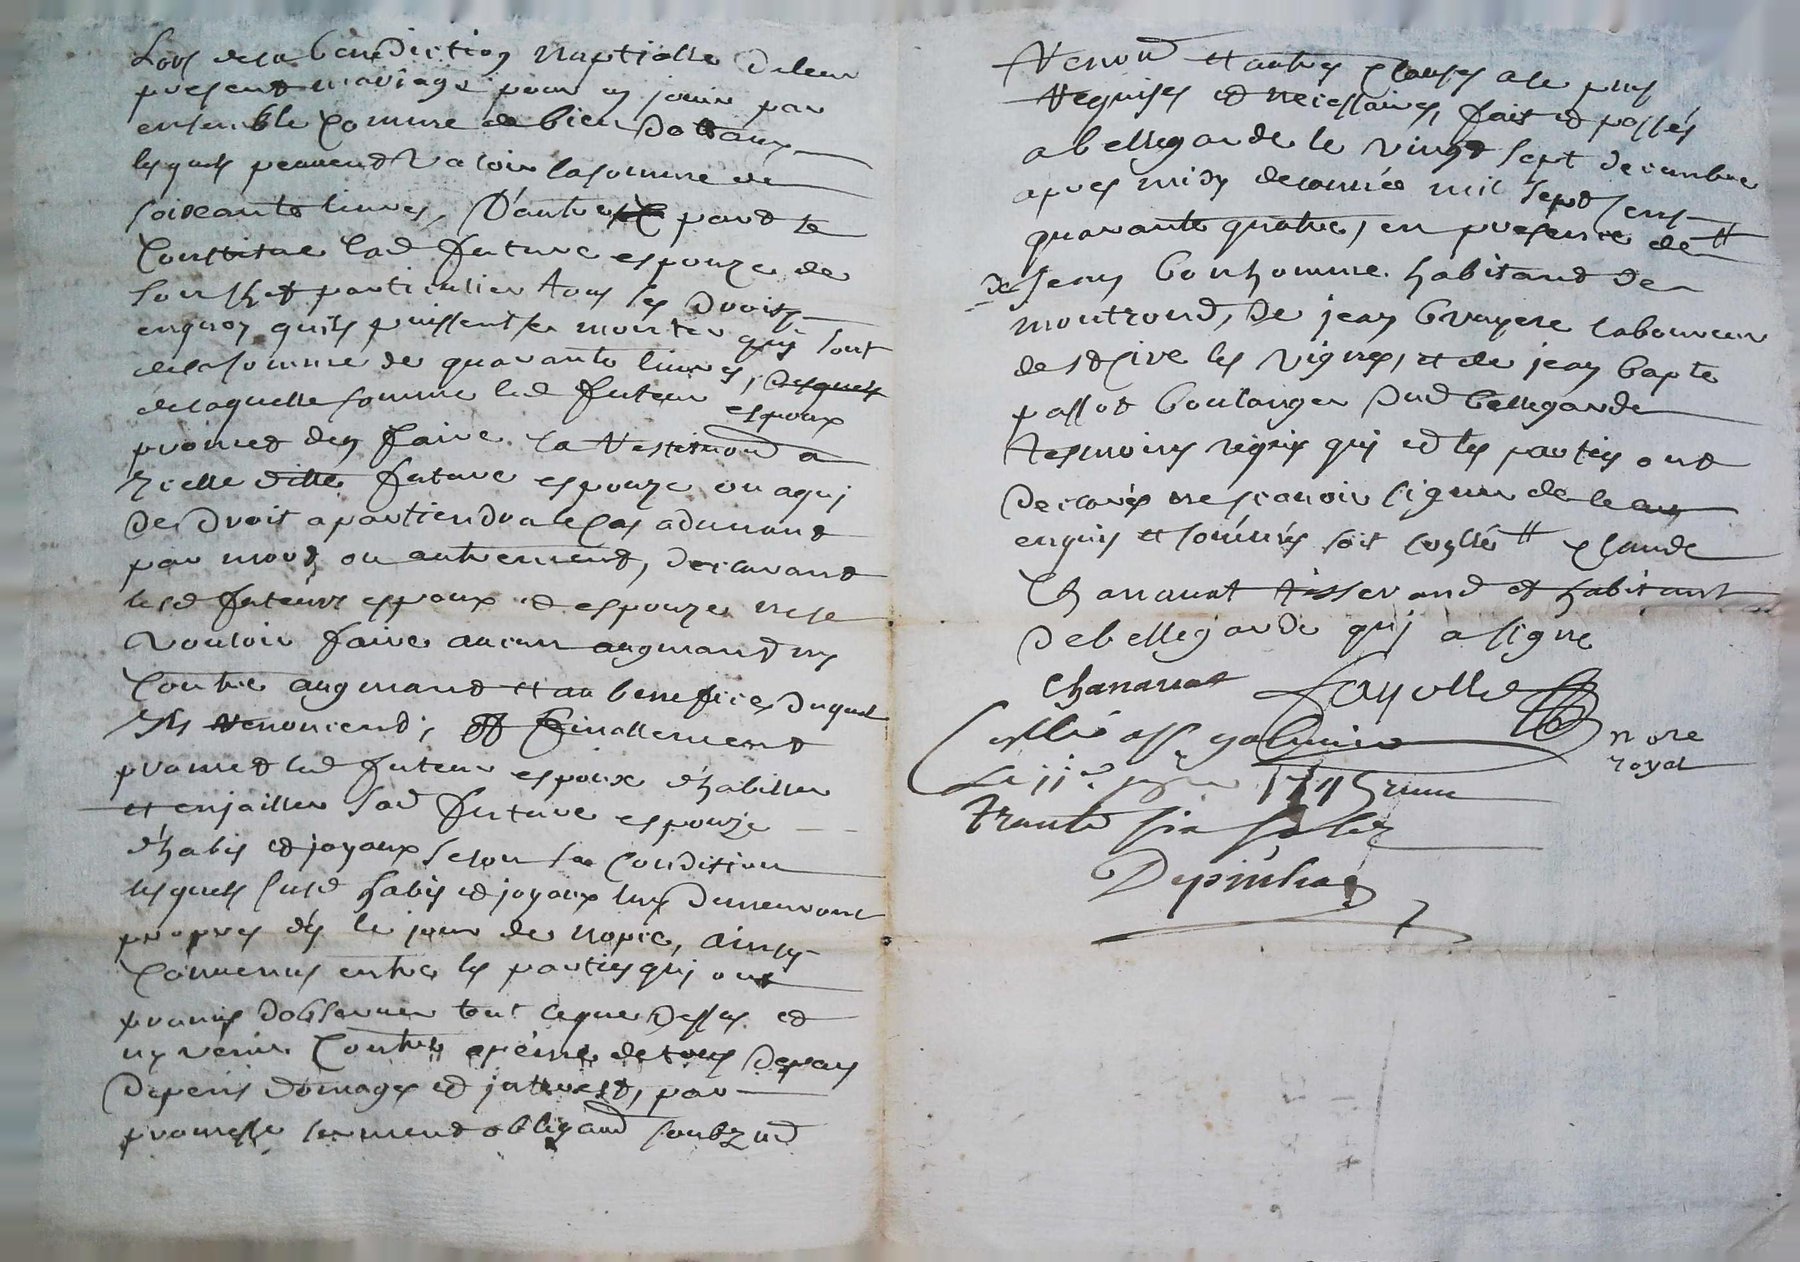 Lors de la benediction nuptialle de leur
present mariage pour en jouir par
ensemble comme de bien dottaux
lesquels peuvent valoir la somme de
soixante livres, D'autre part se
Constitue lad future espouze de
son chef particulier tous les droits
enquoy quils puissent se monter qui sont
de la somme de quarante livres,
de laquelle somme led futeur espoux
promet den faire la restition a
icelle ditte future espouze ou a qui
de droit apartiendra le cas advenant
par mort ou autrement, declarant
lesd futeurs espoux et espouze ne se
vouloir faire aucun augmand ny
Contre augmand et au benefice duquel
Ils renoncent; finallement
promet led futeur espoux d'habiller
et enjailler sad future espouze
d'habis et joyaux selon sa Condition
lesquels susd habis et joyaux luy demeuront
propres dés le jour de nopie, ainsy
Convenus entre les parties qui ont
promis dobserver tout ceque dessus et
ny venir Contre apeine de tous
depens domages et interest, par
promesse serment obligaon soubz
Renon et autres clauses a ce
requises et necessaires, fait et passés
a bellegarde le vingt sept decembre
apres midy de lannée mil sept cens
quarante quatre, en presence de
Jean bonhomme habitant de
montrond, de jean bruyere laboureur
de st Cire les vignes, et de jean bapte
passot boulanger dud bellegarde
tesmoins réquis qui et les parties ont
declarés ne scavoir signer de ce
enquis et sommés soit Claude
Chanavat tisserand et habitant
debellegarde qui a signé
Chanavat Fayolle
nore
royal
Le 11e 1745
trante six solz